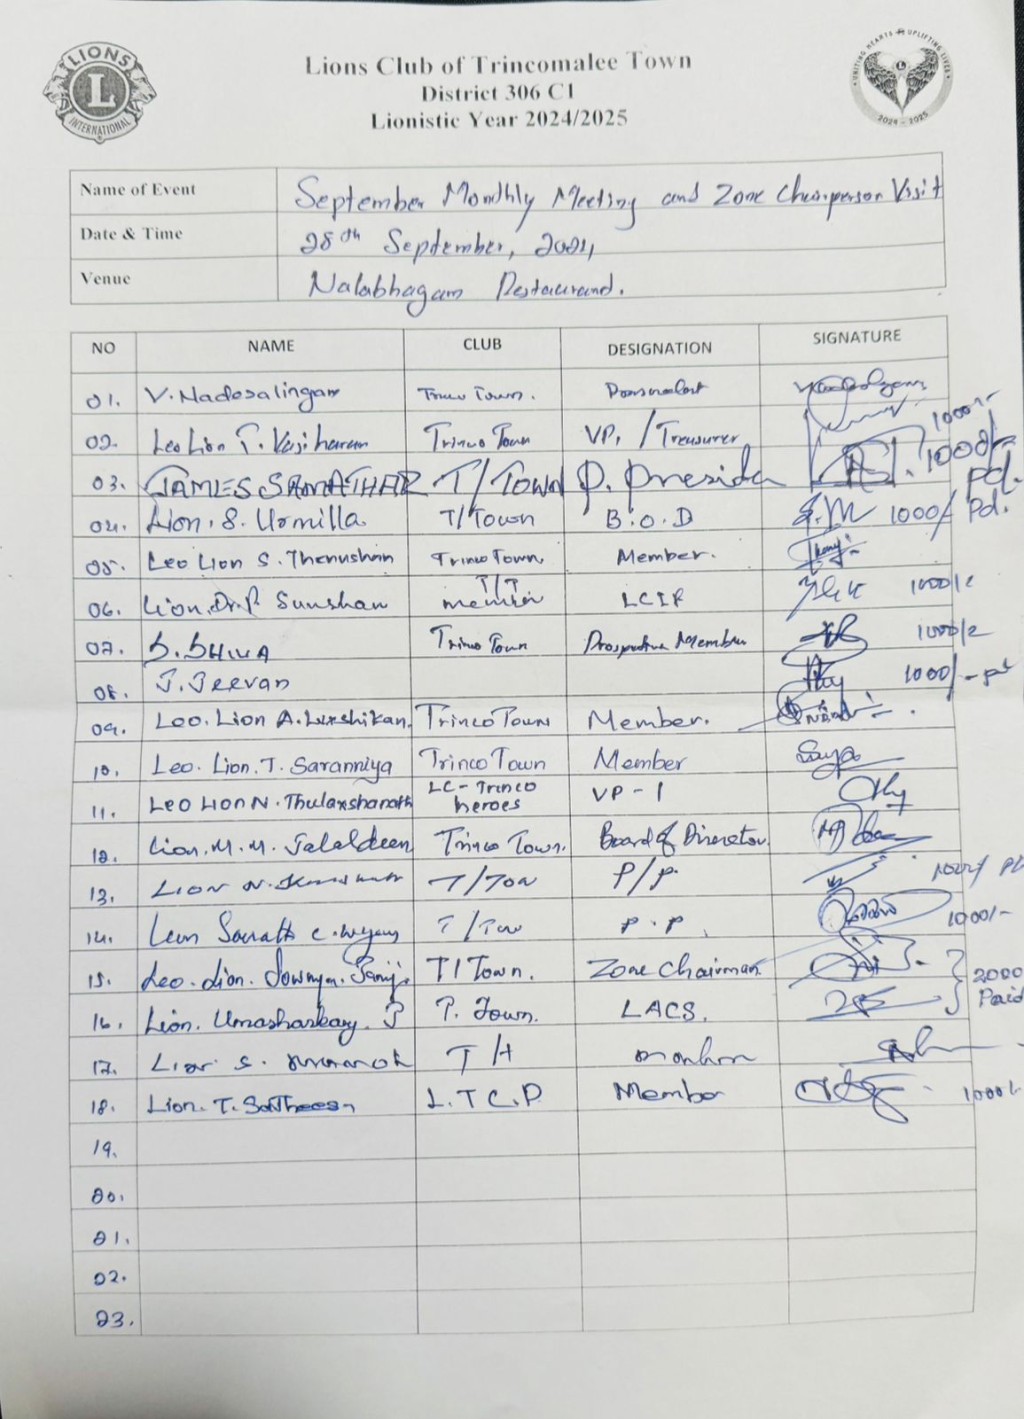 LIONS
L
INTERNATIONAL
UNITING HEARTS UPLIFTING LIVES
2024 - 2025
Lions Club of Trincomalee Town
District 306 C1
Lionistic Year 2024/2025
Name of Event September Monthly Meeting and Zone Chairperson Visit
Date & Time 28th September, 2024
Venue Nalabhagam Restaurand.
NO NAME CLUB DESIGNATION SIGNATURE
01. V. Nadesalingam Trinco Town.
02. Leo Lion T. Trinco Town VP, / Treasurer 1000/-
03. JAMES T/TOWN P. 1000/- pd.
04. Lion. S. Urmilla. T/Town B.O.D S.M 1000/ Pd.
05. Leo Lion S. Thenushan Trinco Town Member.
06. Lion. Dr. P. Sunshan T/T LCIF 1000/2
07. S. SHIVA Trinco Town Prospective Member 1000/2
08. J. Jeevan 1000/-
09. Leo. Lion A. Luxshikan. Trinco Town Member.
10. Leo. Lion. T. Saranniya Trinco Town Member
11. Leo Lion N. Thulaxshanath LC - Trinco heroes VP - 1
12. Lion. M. M. Jalaldeen Trinco Town. Board of Director.
13. Lion N. T/Ton P/P.
14. Lion Sarath C. T/Tow P.P. 1000/-
15. Leo. Lion. T/Town. Zone Chairman.
2000 Paid
16. Lion. Umashankary. J T. Town. LACS.
17. Lion S. T H
18. Lion. T. Satheesan L.T C.P Member 1000/-
19.
20.
21.
22.
23.